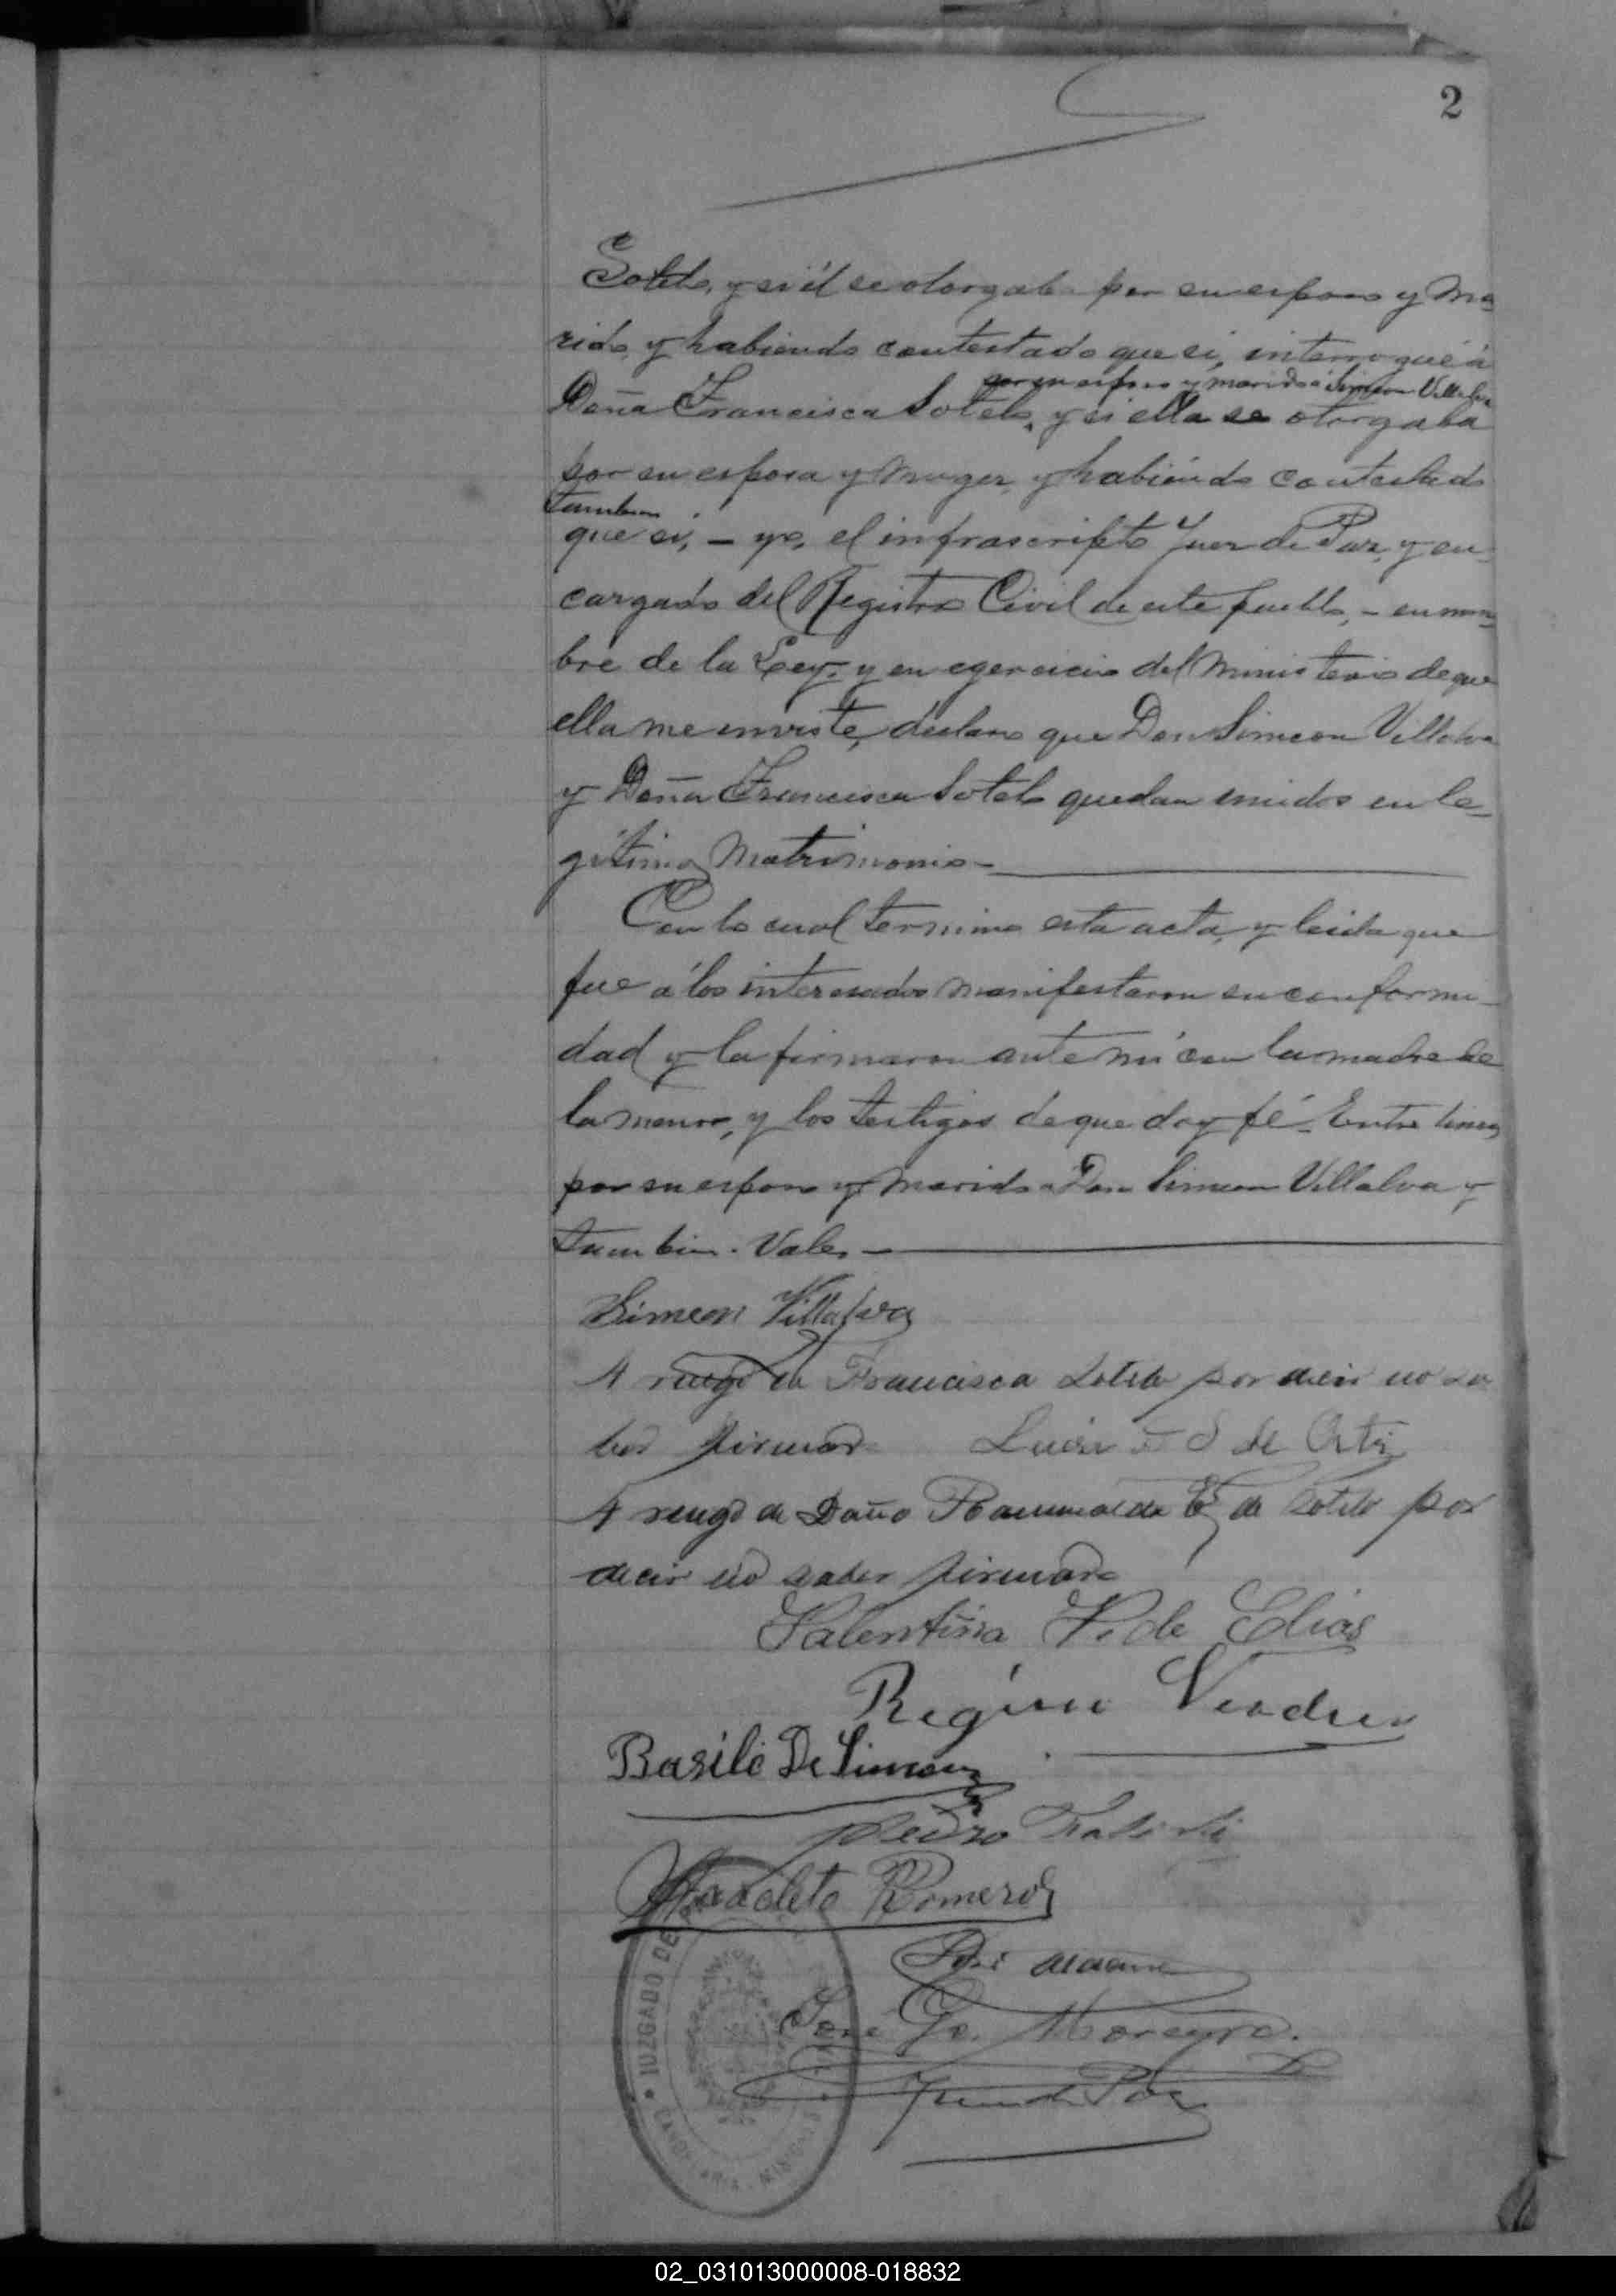 2
Sotelo, y si él se otorgaba por su esposo y ma-
rido, y habiendo contestado que si, interrogué á
por su esposo y marido á Simeon Villalva
Doña Francisca Sotelo, y si ella se otorgaba
por su esposa y muger, y habiendo contestado
tambien
que si, - yo, el infrascripto Juez de Paz, y en-
cargado del Registro Civil de este pueblo, - en nom-
bre de la Ley, y en egercicio del Ministerio de que
ella me inviste, declaro que Don Simeon Villalva
y Doña Francisca Sotelo quedan unidos en le-
gítimo Matrimonio -
Con lo cual termino esta acta, y leida que
fue á los interesados manifestaron su conformi-
dad y la firmaron ante mí con la madre de
la menor, y los testigos de que doy fé - Entre lineas
por su esposo y marido a Don Simeon Villalva y
tambien - Vale -
Simeon Villalva
A ruego de Francisca Sotelo por decir no sa
ber firmar Luisa S de Ortiz
A ruego de Doña Romualda de Sotelo por
decir no saber firmar
Valentina V. de Elias
Regino
Basilio De Simoni
Pedro
Anacleto Romero
José
José G. Moreyra.
Juez de Paz
JUZGADO DE
CANDELARIA - MISIONES
02_031013000008-018832